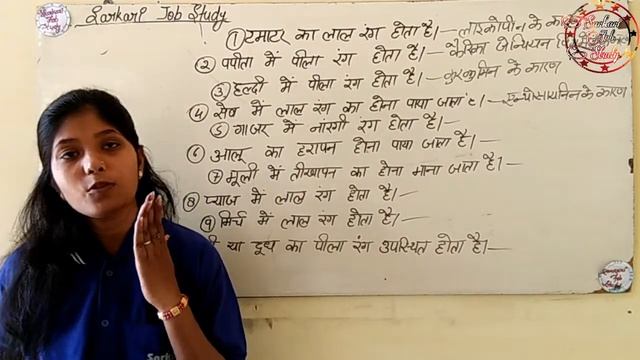 Sarkari Job Study
① टमाटर का लाल रंग होता है।— लाइकोपीन के का
② पपीता में पीला रंग होता है।—
③ हल्दी में पीला रंग होता है।— कुरकुमिन के कारण
④ सेव में लाल रंग का होना पाया जाता है।— एन्थोसायनिन के कारण
⑤ गाजर में नांरगी रंग होता है।—
⑥ आलू का हरापन होना पाया जाता है।—
⑦ मूली में तीखापन का होना माना जाता है।—
⑧ प्याज में लाल रंग होता है।—
⑨ मिर्च में लाल रंग होता है।—
या दूध का पीला रंग उपस्थित होता है।—
Sarkari
Job
Study